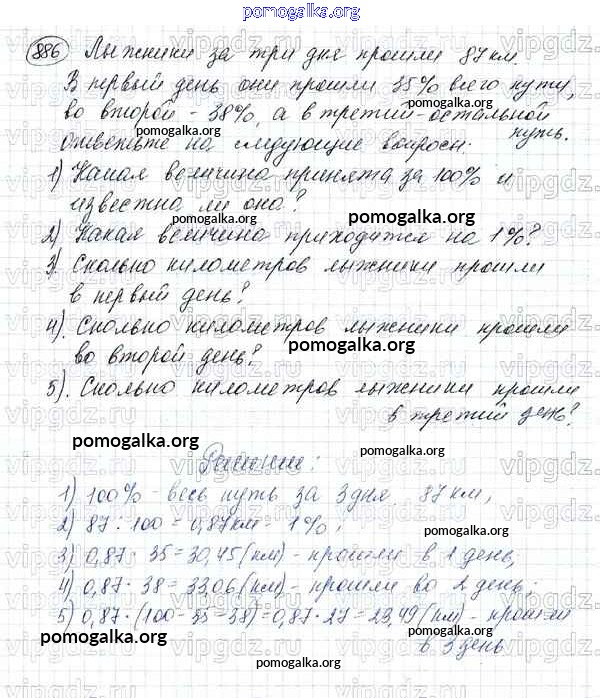 pomogalka.org
886 Лыжники за три дня прошли 87 км.
В первый день они прошли 35% всего пути,
во второй - 38%, а в третий - остальной
путь.
ответьте на следующие вопросы:
1) Какая величина принята за 100% и
известна ли она?
2) Какая величина приходится на 1%?
3) Сколько километров лыжники прошли
в первый день?
4). Сколько километров лыжники прошли
во второй день?
5). Сколько километров лыжники прошли
в третий день?
Решение:
1) 100% - весь путь за 3 дня 87 км,
2) 87 : 100 = 0,87 км - 1%;
3) 0,87 · 35 = 30,45 (км) - прошли в 1 день,
4) 0,87 · 38 = 33,06 (км) - прошли во 2 день;
5) 0,87 · (100-35-38) = 0,87 · 27 = 23,49 (км) - прошли
в 3 день
pomogalka.org